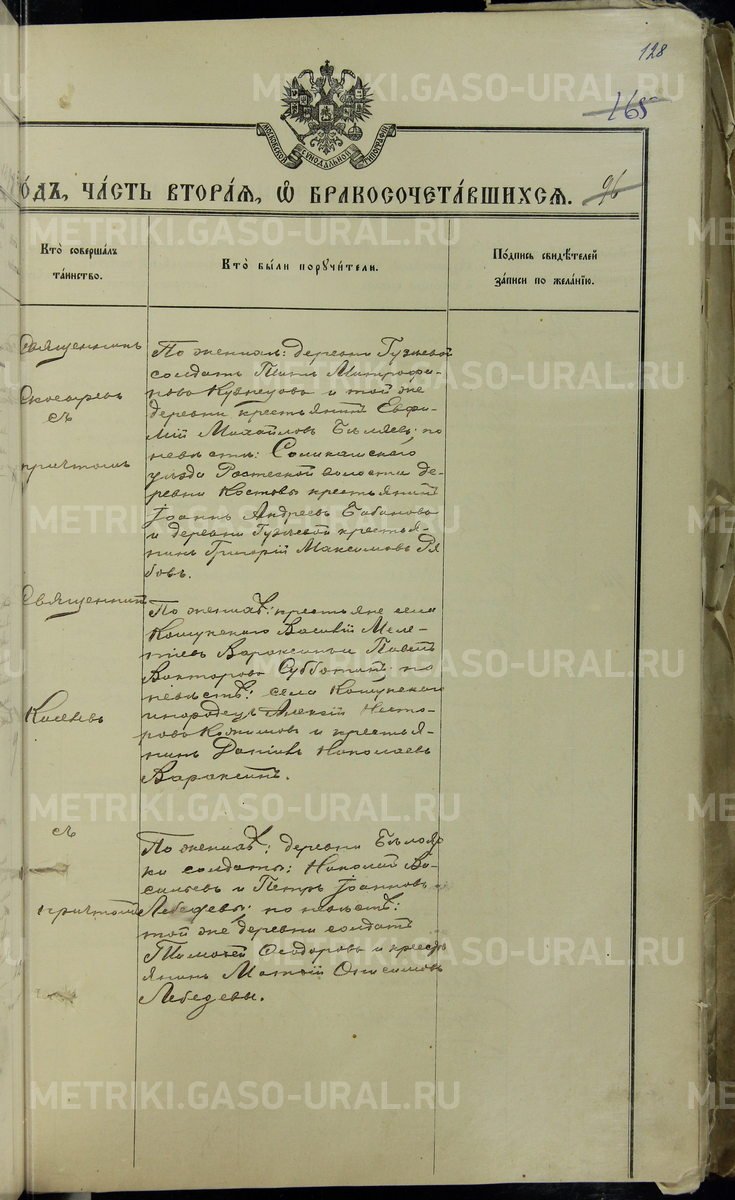 128
165
МОСКОВСКОЙ СѴНОДАЛЬНОЙ ТИПОГРАФІИ
О́ДЪ, ЧА́СТЬ ВТОРА́Я, Ѡ БРАКОСОЧЕТА́ВШИХСЯ. 96
Кто̀ соверша́лъ
та́инство.
Кто̀ бы́ли поручи́тели.
По́дпись свидѣ́телей
за́писи по жела́нію.
Священникъ
съ
причтомъ
По женихѣ: деревни Гузѣевой
солдатъ Митрофа-
новъ Кузнецовъ и той же
деревни крестьянинъ Евфи-
мій Михайловъ Бѣляевъ; по
невѣстѣ: Соликамскаго
уѣзда Ростесской волости де-
ревни Костовы крестьянинъ
Іоаннъ Андреевъ Бабиновъ
и деревни Гузѣевой крестья-
нинъ Григорій Максимовъ Ря
бовъ.
Священникъ
Киселевъ
съ
причтомъ
По женихѣ: крестьяне села
Кошукскаго Василій Меле-
тіевъ Вараксинъ и Павелъ
Викторовъ Субботинъ; по
невѣстѣ: села Кошукскаго
инородецъ Алексій Несто-
ровъ и крестья-
нинъ Даніилъ Николаевъ
Вараксинъ.
По женихѣ: деревни Бѣлояр
ки солдаты: Николай Ва-
сильевъ и Петръ Іоанновъ
Лебедевы; по невѣстѣ:
той же деревни солдатъ
Тимоѳей Ѳеодоровъ и кресть
янинъ Матѳій Онисимовъ
Лебедевы.
METRIKI.GASO-URAL.RU